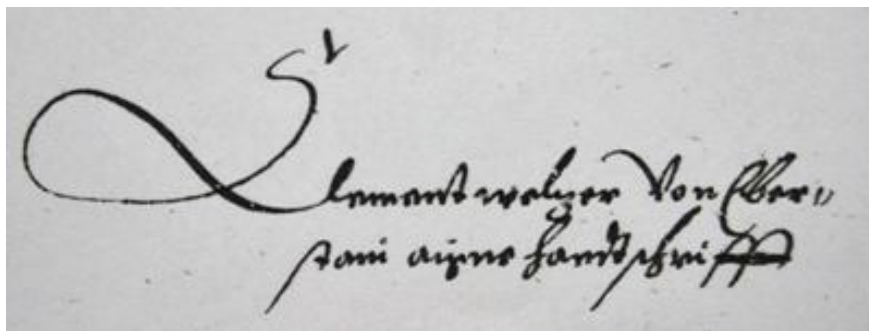 Clement welzer Von Eber=
stain aigne handtschrifft